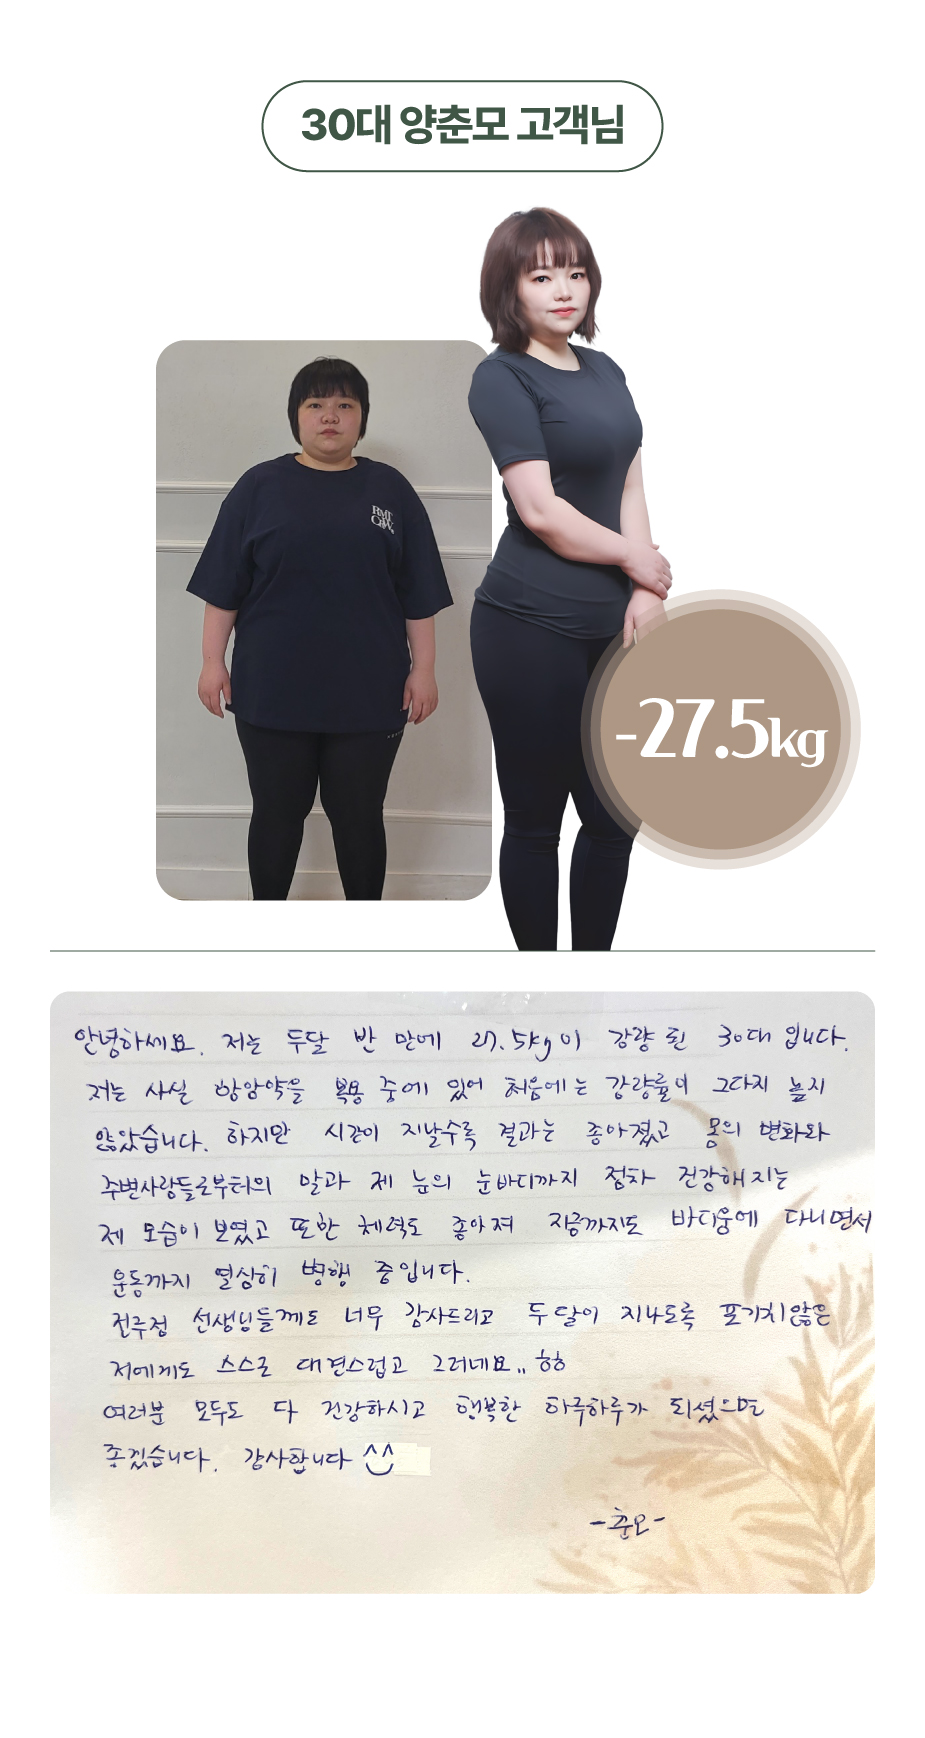 30대 양춘모 고객님
RMT
CREW.
-27.5kg
안녕하세요. 저는 두달 반 만에 27.5kg이 감량 된 30대 입니다.
저는 사실 항암약을 복용 중에 있어 처음에는 감량률이 그다지 높지
않았습니다. 하지만 시간이 지날수록 결과는 좋아졌고 몸의 변화와
주변사람들로부터의 말과 제 눈의 눈바디까지 점차 건강해지는
제 모습이 보였고 또한 체력도 좋아져 지금까지도 바디움에 다니면서
운동까지 열심히 병행 중입니다.
전주점 선생님들께도 너무 감사드리고 두달이 지나도록 포기치않은
저에게도 스스로 대견스럽고 그러네요.. ㅎㅎ
여러분 모두도 다 건강하시고 행복한 하루하루가 되셨으면
좋겠습니다. 감사합니다 ^^
-춘모-